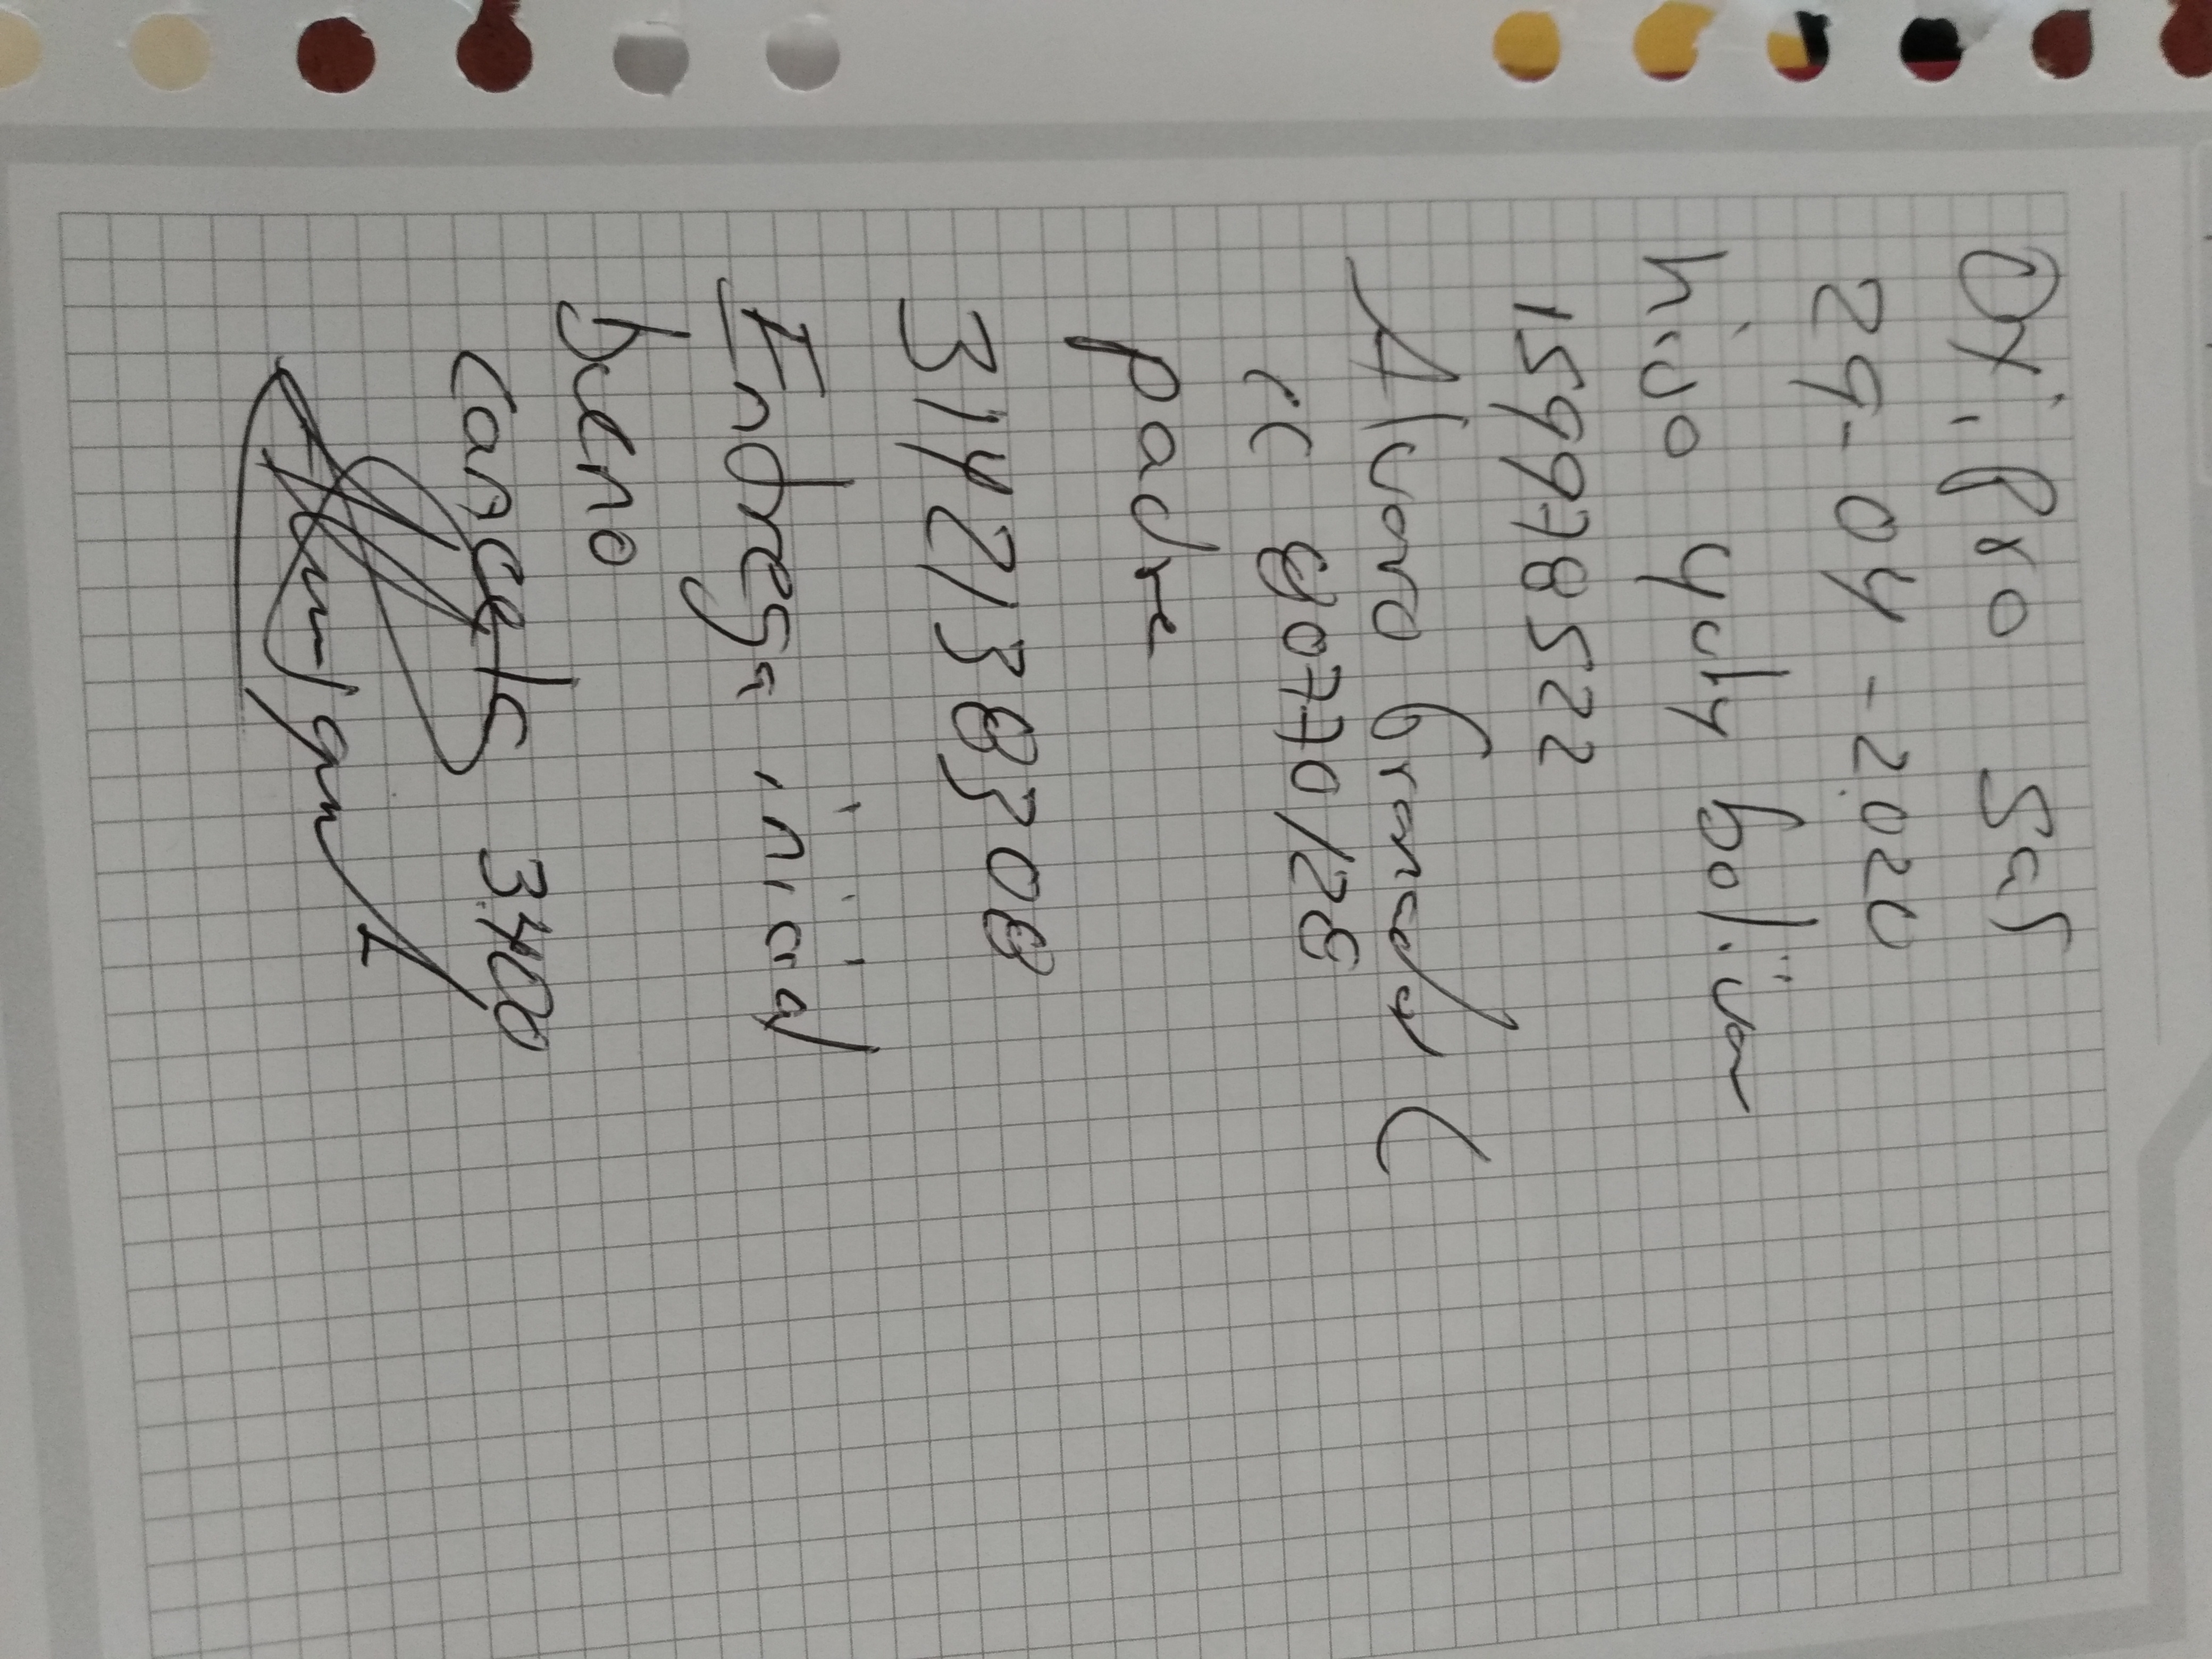 Oxipro SaS
29-04-2020
hivo yuly bolivar
1599978522
Alvaro Granada C
cc 80770128
padre
3142138308
Entrega inicial
bueno
Canceló 3.400